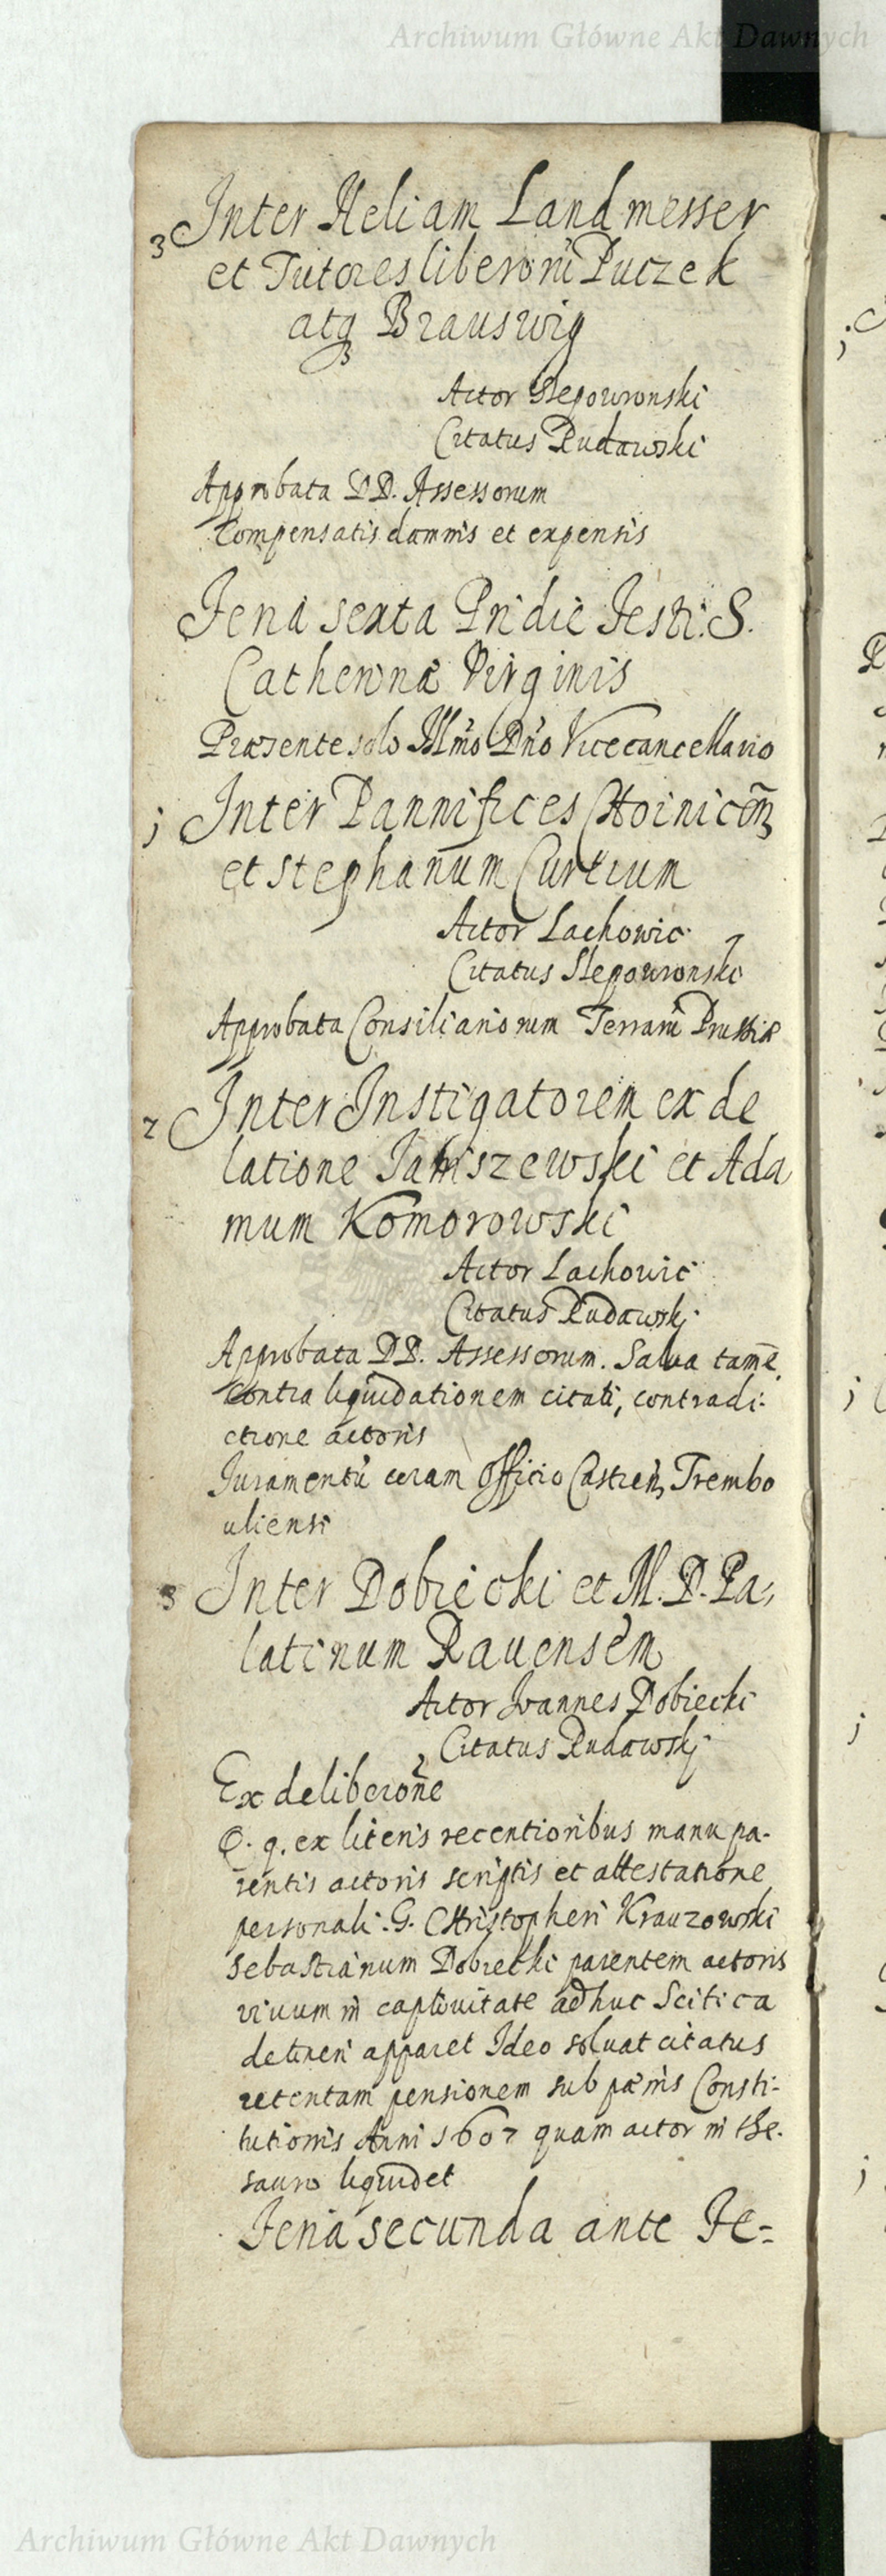 Archiwum Główne Akt Dawnych
3 Inter Heliam Landmesser
et Tutores liberorũ Puczek
atq Brauswig
Actor Slepowronski
Citatus Rudawski
Approbata DD. Assessorum
Compensatis damnis et expensis
Feria sexta Pridie Festi S.
Catherinæ Virginis
Præsente solo Illmo Dno Vicecancellario
j Inter Pannifices Choinicen
et Stephanum Curtium
Actor Lachowic
Citatus Slepowronski
Approbata Consiliariorum Terrarũ Prussiæ
2 Inter Instigatorem ex de
latione Janiszewski et Ada
mum Komorowski
Actor Lachowic
Citatus Rudawskj
Approbata DD. Assessorum. Salva tamẽ
contra liquidationem citati, contradi-
ctione actoris
Juramentũ coram Officio Castren Trembo
uliensi
3 Inter Dobiecki et M. D. Pa,
latinum Rauensem
Actor Joannes Dobiecki
Citatus Rudawskj
Ex deliberone
Q. q. ex literis recentioribus manu pa-
rentis actoris scriptis et attestatione
personali G. Christopheri Krauzowski
Sebastianum Dobiecki parentem actoris
viuum in captiuitate adhuc Scitica
detineri apparet Ideo soluat citatus
retentam pensionem sub pœnis Consti-
tutionis Anni 1607 quam actor in the-
sauro liquidet
Feria secunda ante Fe=
Archiwum Główne Akt Dawnych